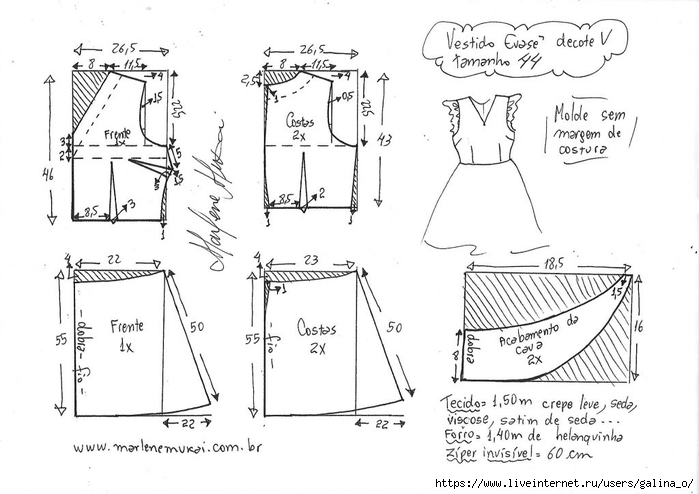 Vestido Evasê decote V
tamanho 44
Molde sem
margem de
costura
26,5
8
11,5
4
1,5
22,5
Frente
1x
3
2
46
5
1,5
3
8,5
3
1
26,5
8
11,5
4
2,5
1
0,5
22,5
Costas
2x
43
8,5
2
1
1
Marlene Mukai
22
4
55
dobra - fio
Frente
1x
50
22
23
4
1
55
fio
Costas
2x
50
22
18,5
1,5
16
Acabamento da
cava
2x
dobra
8
Tecido= 1,50m crepe leve, seda,
viscose, satim de seda...
Forro= 1,40m de helanquinha
Zíper invisível= 60 cm
www.marlenemukai.com.br
https://www.liveinternet.ru/users/galina_o/